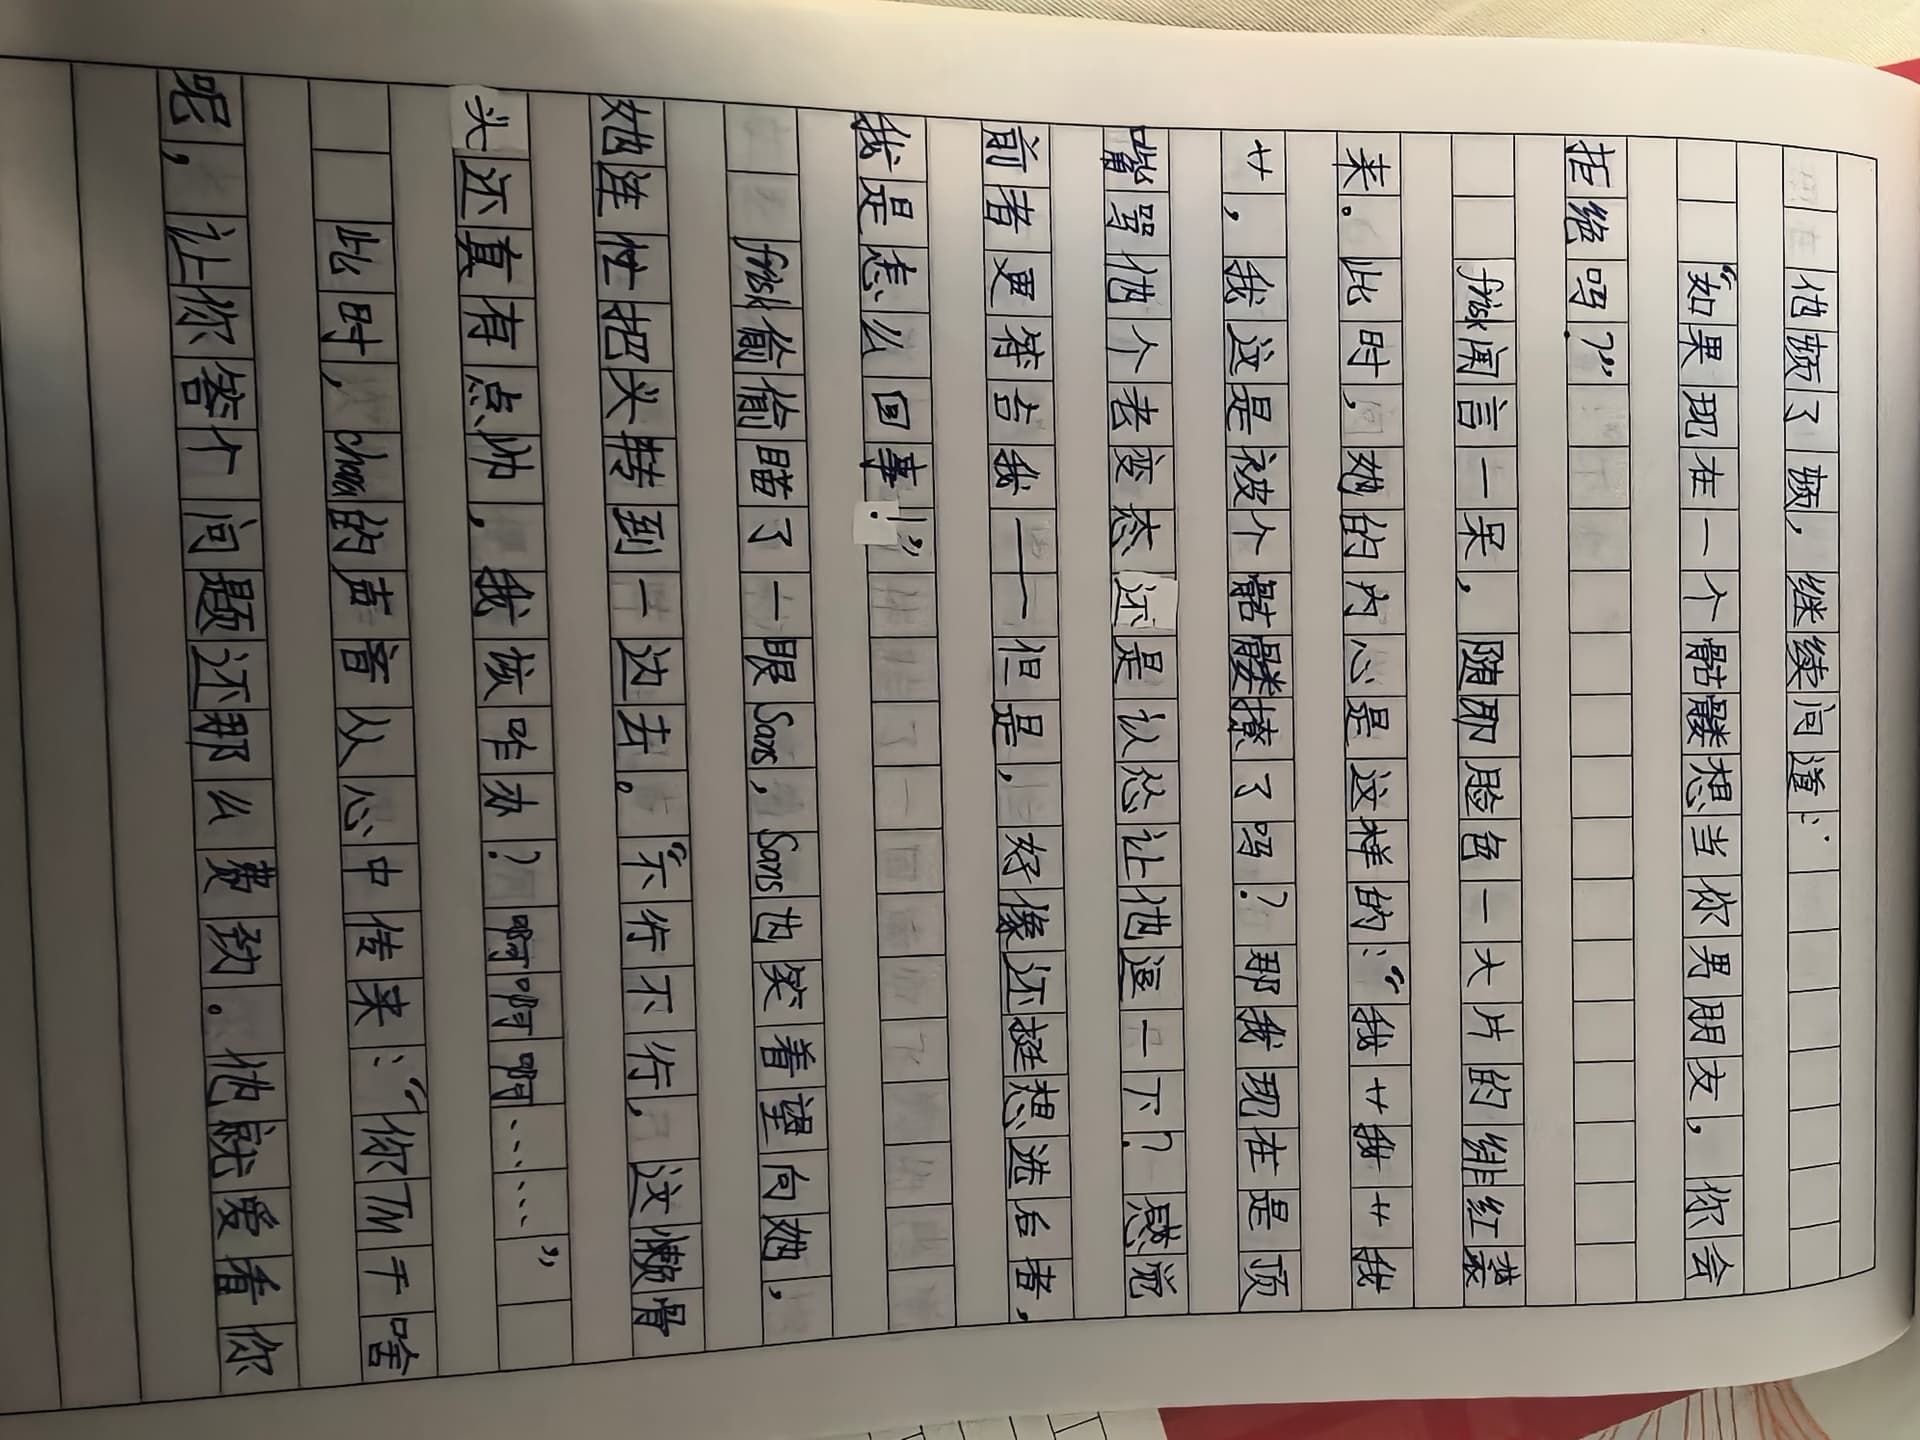 他顿了顿，继续问道：
“如果现在一个骷髅想当你男朋友，你会
拒绝吗？”
frisk闻言一呆，随即脸色一大片的绯红袭
来。此时，她的内心是这样的：“我艹我艹我
艹，我这是被个骷髅撩了吗？那我现在是顶
嘴骂他个老变态还是认怂让他逗一下？感觉
前者更符合我——但是，好像还挺想选后者，
我是怎么回事！”
frisk偷偷瞄了一眼Sans，Sans也笑着望向她，
她连忙把头转到一边去。“不行不行，这懒骨
头还真有点帅，我该咋办？啊啊啊……”
此时，chara的声音从心中传来：“你TM干啥
呢，让你答个问题还那么费劲。他就爱看你